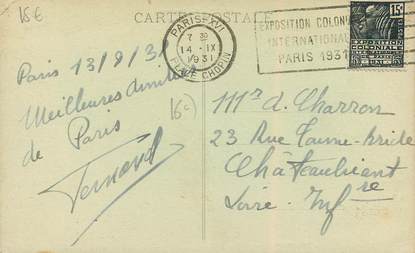 15€
CARTE POSTALE
PARIS-XVI
7 30
14 - IX
1931
PLACE CHOPIN
EXPOSITION COLONIALE
INTERNATIONALE
PARIS 1931
15c
EXPOSITION
COLONIALE
Paris 13/9/3
Meilleures amitiés
de Paris
Fernand
(6€)
Mr A. Charron
23 Rue Taume-bride
Châteaubriant
Loire-Infre